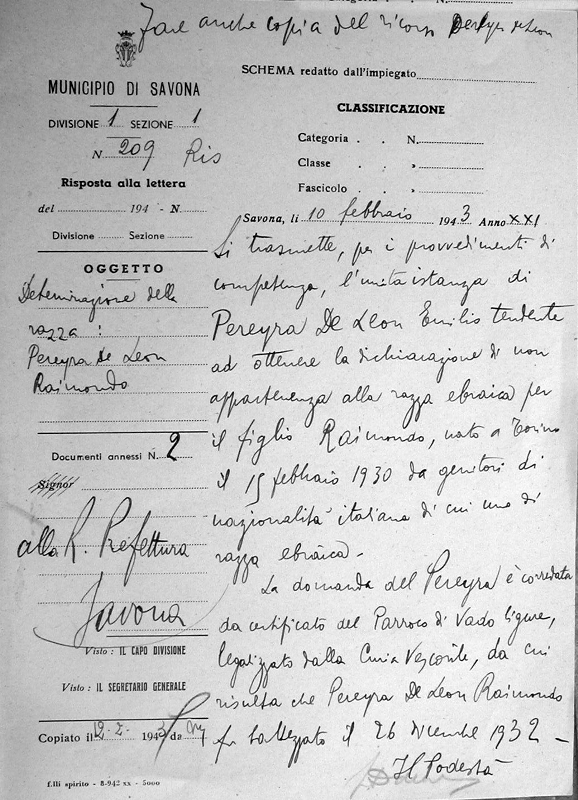 Fare anche copia del ricorso Pereyra de Leon
MUNICIPIO DI SAVONA
DIVISIONE 1 SEZIONE 1
N. 209 Ris
Risposta alla lettera
del 194 - N.
Divisione Sezione
OGGETTO
Determinazione della
razza:
Pereyra de Leon
Raimondo
Documenti annessi N. 2
Signor
alla R. Prefettura
Savona
Visto: IL CAPO DIVISIONE
Visto: IL SEGRETARIO GENERALE
Copiato il 12-2- 1943 da
f.lli spirito - 8-942 xx - 5000
SCHEMA redatto dall'impiegato
CLASSIFICAZIONE
Categoria . . N.
Classe . . »
Fascicolo . . »
Savona, li 10 febbraio 1943 Anno XXI
Si trasmette, per i provvedimenti di
competenza, l'unita istanza di
Pereyra De Leon Emilio tendente
ad ottenere la dichiarazione di non
appartenenza alla razza ebraica per
il figlio Raimondo, nato a Torino
il 15 febbraio 1930 da genitori di
nazionalità italiana di cui uno di
razza ebraica.
La domanda del Pereyra è corredata
da certificato del Parroco di Vado Ligure,
legalizzato dalla Curia Vescovile, da cui
risulta che Pereyra De Leon Raimondo
fu battezzato il 26 dicembre 1932 -
Il Podestà